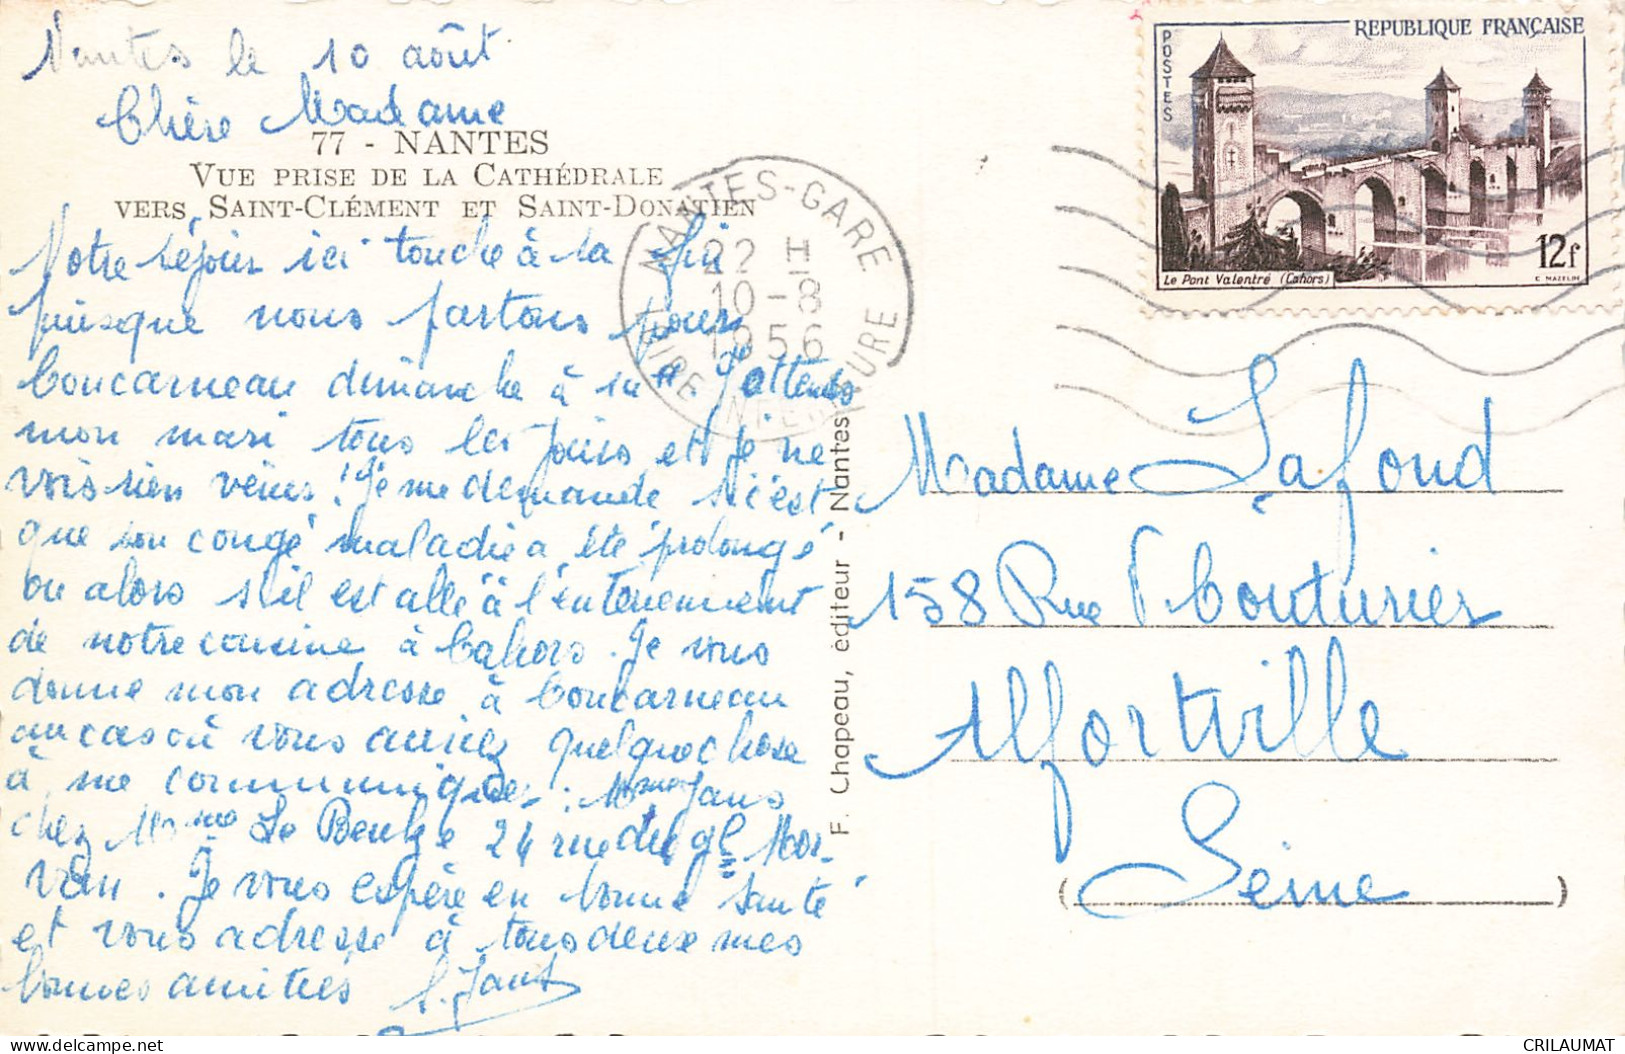 Nantes le 10 août
Chère Madame
77 - NANTES
VUE PRISE DE LA CATHÉDRALE
VERS SAINT-CLÉMENT ET SAINT-DONATIEN
Notre séjour ici touche à sa fin
puisque nous partons pour
Concarneau dimanche à J'attends
mon mari tous les jours et je ne
vois rien venir ! Je me demande si c'est
que son congé maladie a été prolongé
ou alors s'il est allé à l'enterrement
de notre cousine à Cahors. Je vous
donne mon adresse à Concarneau
au cas où vous auriez quelque chose
à me communiquer : Mme Jans
chez Mme Le 24 rue du Gl Mor-
van. Je vous espère en bonne santé
et vous adresse à tous deux mes
bonnes amitiés
F. Chapeau, éditeur - Nantes
NANTES-GARE
22 H
10-8
1956
LOIRE INFERIEURE
REPUBLIQUE FRANÇAISE
POSTES
12f
Le Pont Valentré (Cahors)
C. MAZELIN
Madame Lafond
158 Rue P. Couturier
Alfortville
(Seine)
CRILAUMAT